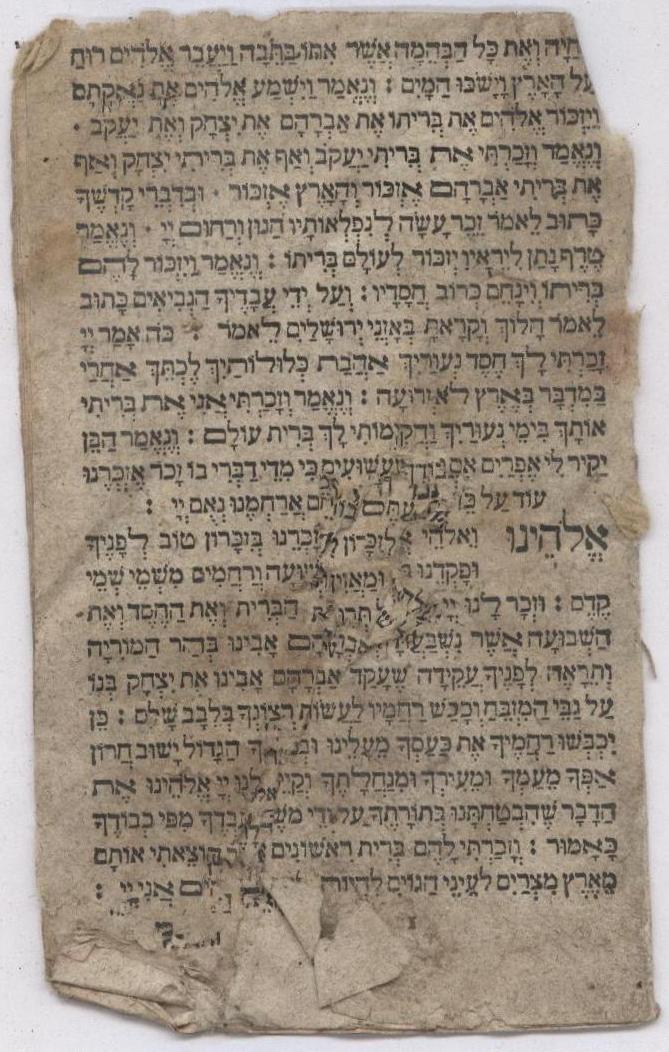 חַיָּה וְאֶת כָּל הַבְּהֵמָה אֲשֶׁר אִתּוֹ בַּתֵּבָה וַיַּעֲבֵר אֱלֹהִים רוּחַ
עַל הָאָרֶץ וַיָּשֹׁכּוּ הַמָּיִם : וְנֶאֱמַר וַיִּשְׁמַע אֱלֹהִים אֶת נַאֲקָתָם
וַיִּזְכּוֹר אֱלֹהִים אֶת בְּרִיתוֹ אֶת אַבְרָהָם אֶת יִצְחָק וְאֶת יַעֲקֹב ·
וְנֶאֱמַר וְזָכַרְתִּי אֶת בְּרִיתִי יַעֲקֹב וְאַף אֶת בְּרִיתִי יִצְחָק וְאַף
אֶת בְּרִיתִי אַבְרָהָם אֶזְכּוֹר וְהָאָרֶץ אֶזְכּוֹר · וּבְדִבְרֵי קָדְשֶׁךָ
כָּתוּב לֵאמֹר זֵכֶר עָשָׂה לְנִפְלְאוֹתָיו חַנּוּן וְרַחוּם יְיָ · וְנֶאֱמַר
טֶרֶף נָתַן לִירֵאָיו יִזְכּוֹר לְעוֹלָם בְּרִיתוֹ : וְנֶאֱמַר וַיִּזְכּוֹר לָהֶם
בְּרִיתוֹ וַיִּנָּחֵם כְּרוֹב חֲסָדָיו : וְעַל יְדֵי עֲבָדֶיךָ הַנְּבִיאִים כָּתוּב
לֵאמֹר הָלוֹךְ וְקָרָאתָ בְּאָזְנֵי יְרוּשָׁלַיִם לֵאמֹר : כֹּה אָמַר יְיָ
זָכַרְתִּי לָךְ חֶסֶד נְעוּרַיִךְ אַהֲבַת כְּלוּלוֹתָיִךְ לֶכְתֵּךְ אַחֲרַי
בַּמִּדְבָּר בְּאֶרֶץ לֹא זְרוּעָה : וְנֶאֱמַר וְזָכַרְתִּי אֲנִי אֶת בְּרִיתִי
אוֹתָךְ בִּימֵי נְעוּרַיִךְ וַהֲקִימוֹתִי לָךְ בְּרִית עוֹלָם : וְנֶאֱמַר הֲבֵן
יַקִּיר לִי אֶפְרַיִם אִם יֶלֶד שַׁעֲשׁוּעִים כִּי מִדֵּי דַבְּרִי בוֹ זָכֹר אֶזְכְּרֶנּוּ
עוֹד עַל כֵּן רַחֵם אֲרַחֲמֶנּוּ נְאֻם יְיָ :
אֱלֹהֵינוּ וֵאלֹהֵי זָכְרֵנוּ בְּזִכְרוֹן טוֹב לְפָנֶיךָ
וּפָקְדֵנוּ יְשׁוּעָה וְרַחֲמִים מִשְּׁמֵי שְׁמֵי
קֶדֶם : וּזְכָר לָנוּ יְיָ הַבְּרִית וְאֶת הַחֶסֶד וְאֶת
הַשְּׁבוּעָה אֲשֶׁר נִשְׁבַּעְתָּ אָבִינוּ בְּהַר הַמּוֹרִיָּה
וְתֵרָאֶה לְפָנֶיךָ עֲקֵידָה שֶׁעָקַד אַבְרָהָם אָבִינוּ אֶת יִצְחָק בְּנוֹ
עַל גַּבֵּי הַמִּזְבֵּחַ וְכָבַשׁ רַחֲמָיו לַעֲשׂוֹת רְצוֹנְךָ בְּלֵבָב שָׁלֵם : כֵּן
יִכְבְּשׁוּ רַחֲמֶיךָ אֶת כַּעַסְךָ מֵעָלֵינוּ הַגָּדוֹל יָשׁוּב חֲרוֹן
אַפְּךָ מֵעַמְּךָ וּמֵעִירְךָ וּמִנַּחֲלָתֶךָ וְקַיֵּים לָנוּ יְיָ אֱלֹהֵינוּ אֶת
הַדָּבָר שֶׁהִבְטַחְתָּנוּ בְּתוֹרָתֶךָ עַל יְדֵי מֹשֶׁה עַבְדֶּךָ מִפִּי כְבוֹדֶךָ
כָּאָמוּר : וְזָכַרְתִּי לָהֶם בְּרִית רִאשׁוֹנִים הוֹצֵאתִי אוֹתָם
מֵאֶרֶץ מִצְרַיִם לְעֵינֵי הַגּוֹיִם לִהְיוֹת אֲנִי יְיָ :